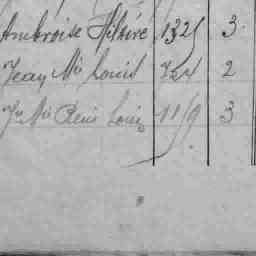 Ambroise Hilaire 1325 3
Jean Mie Louis 724 2
Jn Mie René Louis 1119 3